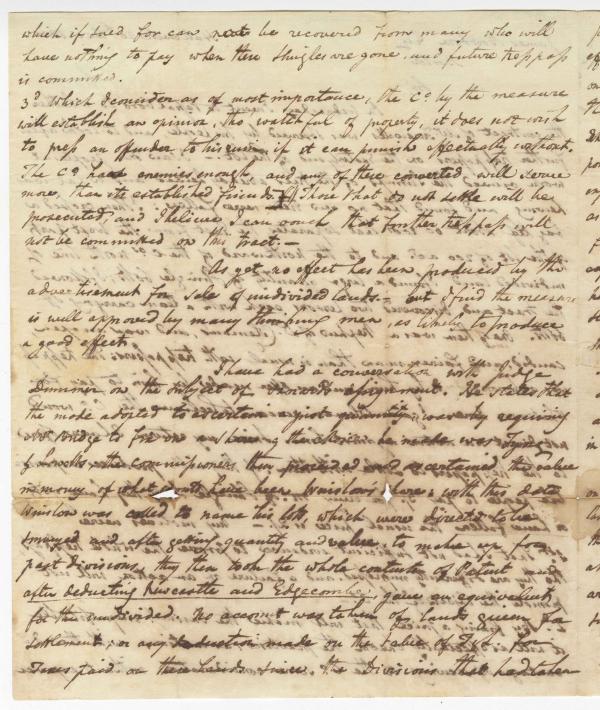 which if sued for can not be recovered from many who will
have nothing to pay when there shingles are gone, and future trespass
is committed.
3d which I consider as of most importance, the Co. by the measure
will establish an opinion, tho watchful of property, it does not wish
to press an offender to his ruin if it can punish effectually without,
The Co have enemies enough, and any of these converted, will serve
more, than its established friends. Those that do not settle will be
prosecuted, and I believe I can vouch that further trespass will
not be committed on this tract. —
As yet no effect has been produced by the
advertisement for Sale of undivided lands. — but I find the measure
is well approved by many thinking men, as likely to produce
a good effect.
I have had a conversation with Judge
Dummer on the subject of assignment. He states that
the mode adopted to ascertain a just quantity, was by requiring
to fix on a the choice he made was
of Lowells, the commissioners then proceeded and ascertained the value
in money of what would have been Winslow's share, with this data
Winslow was called to name his lots, which were directed to be
surveyed and after getting quantity and value, to make up for
past divisions, they then took the whole contents of Patent and
after deducting Newcastle and Edgecombe, gave an equivalent
for the undivided. No account was taken of lands given for
settlement, or any deduction made on the value of for
Taxes paid on these lands since the Divisions that had taken